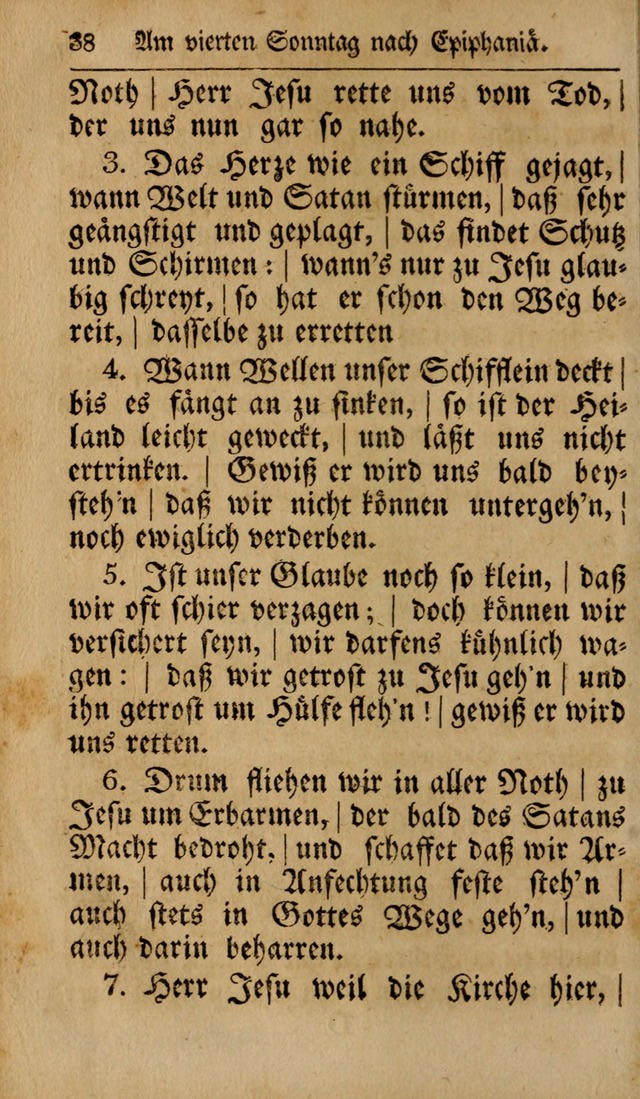 38 Am vierten Sonntag nach Epiphaniå.
Noth | Herr Jesu rette uns vom Tod, |
der uns nun gar so nahe.
3. Das Herze wie ein Schiff gejagt, |
wann Welt und Satan stürmen, | daß sehr
geängstigt und geplagt, | das findet Schutz
und Schirmen: | wann's nur zu Jesu glau-
big schreyt, | so hat er schon den Weg be-
reit, | dasselbe zu erretten
4. Wann Wellen unser Schifflein deckt |
bis es fängt an zu sinken, | so ist der Hei-
land leicht geweckt, | und läßt uns nicht
ertrinken. | Gewiß er wird uns bald bey-
steh'n | daß wir nicht können untergeh'n, |
noch ewiglich verderben.
5. Ist unser Glaube noch so klein, | daß
wir oft schier verzagen; | doch können wir
versichert seyn, | wir darfens kühnlich wa-
gen: | daß wir getrost zu Jesu geh'n | und
ihn getrost um Hülfe fleh'n! | gewiß er wird
uns retten.
6. Drum fliehen wir in aller Noth | zu
Jesu um Erbarmen, | der bald des Satans
Macht bedroht, | und schaffet daß wir Ar-
men, | auch in Anfechtung feste steh'n |
auch stets in Gottes Wege geh'n, | und
auch darin beharren.
7. Herr Jesu weil die Kirche hier, |